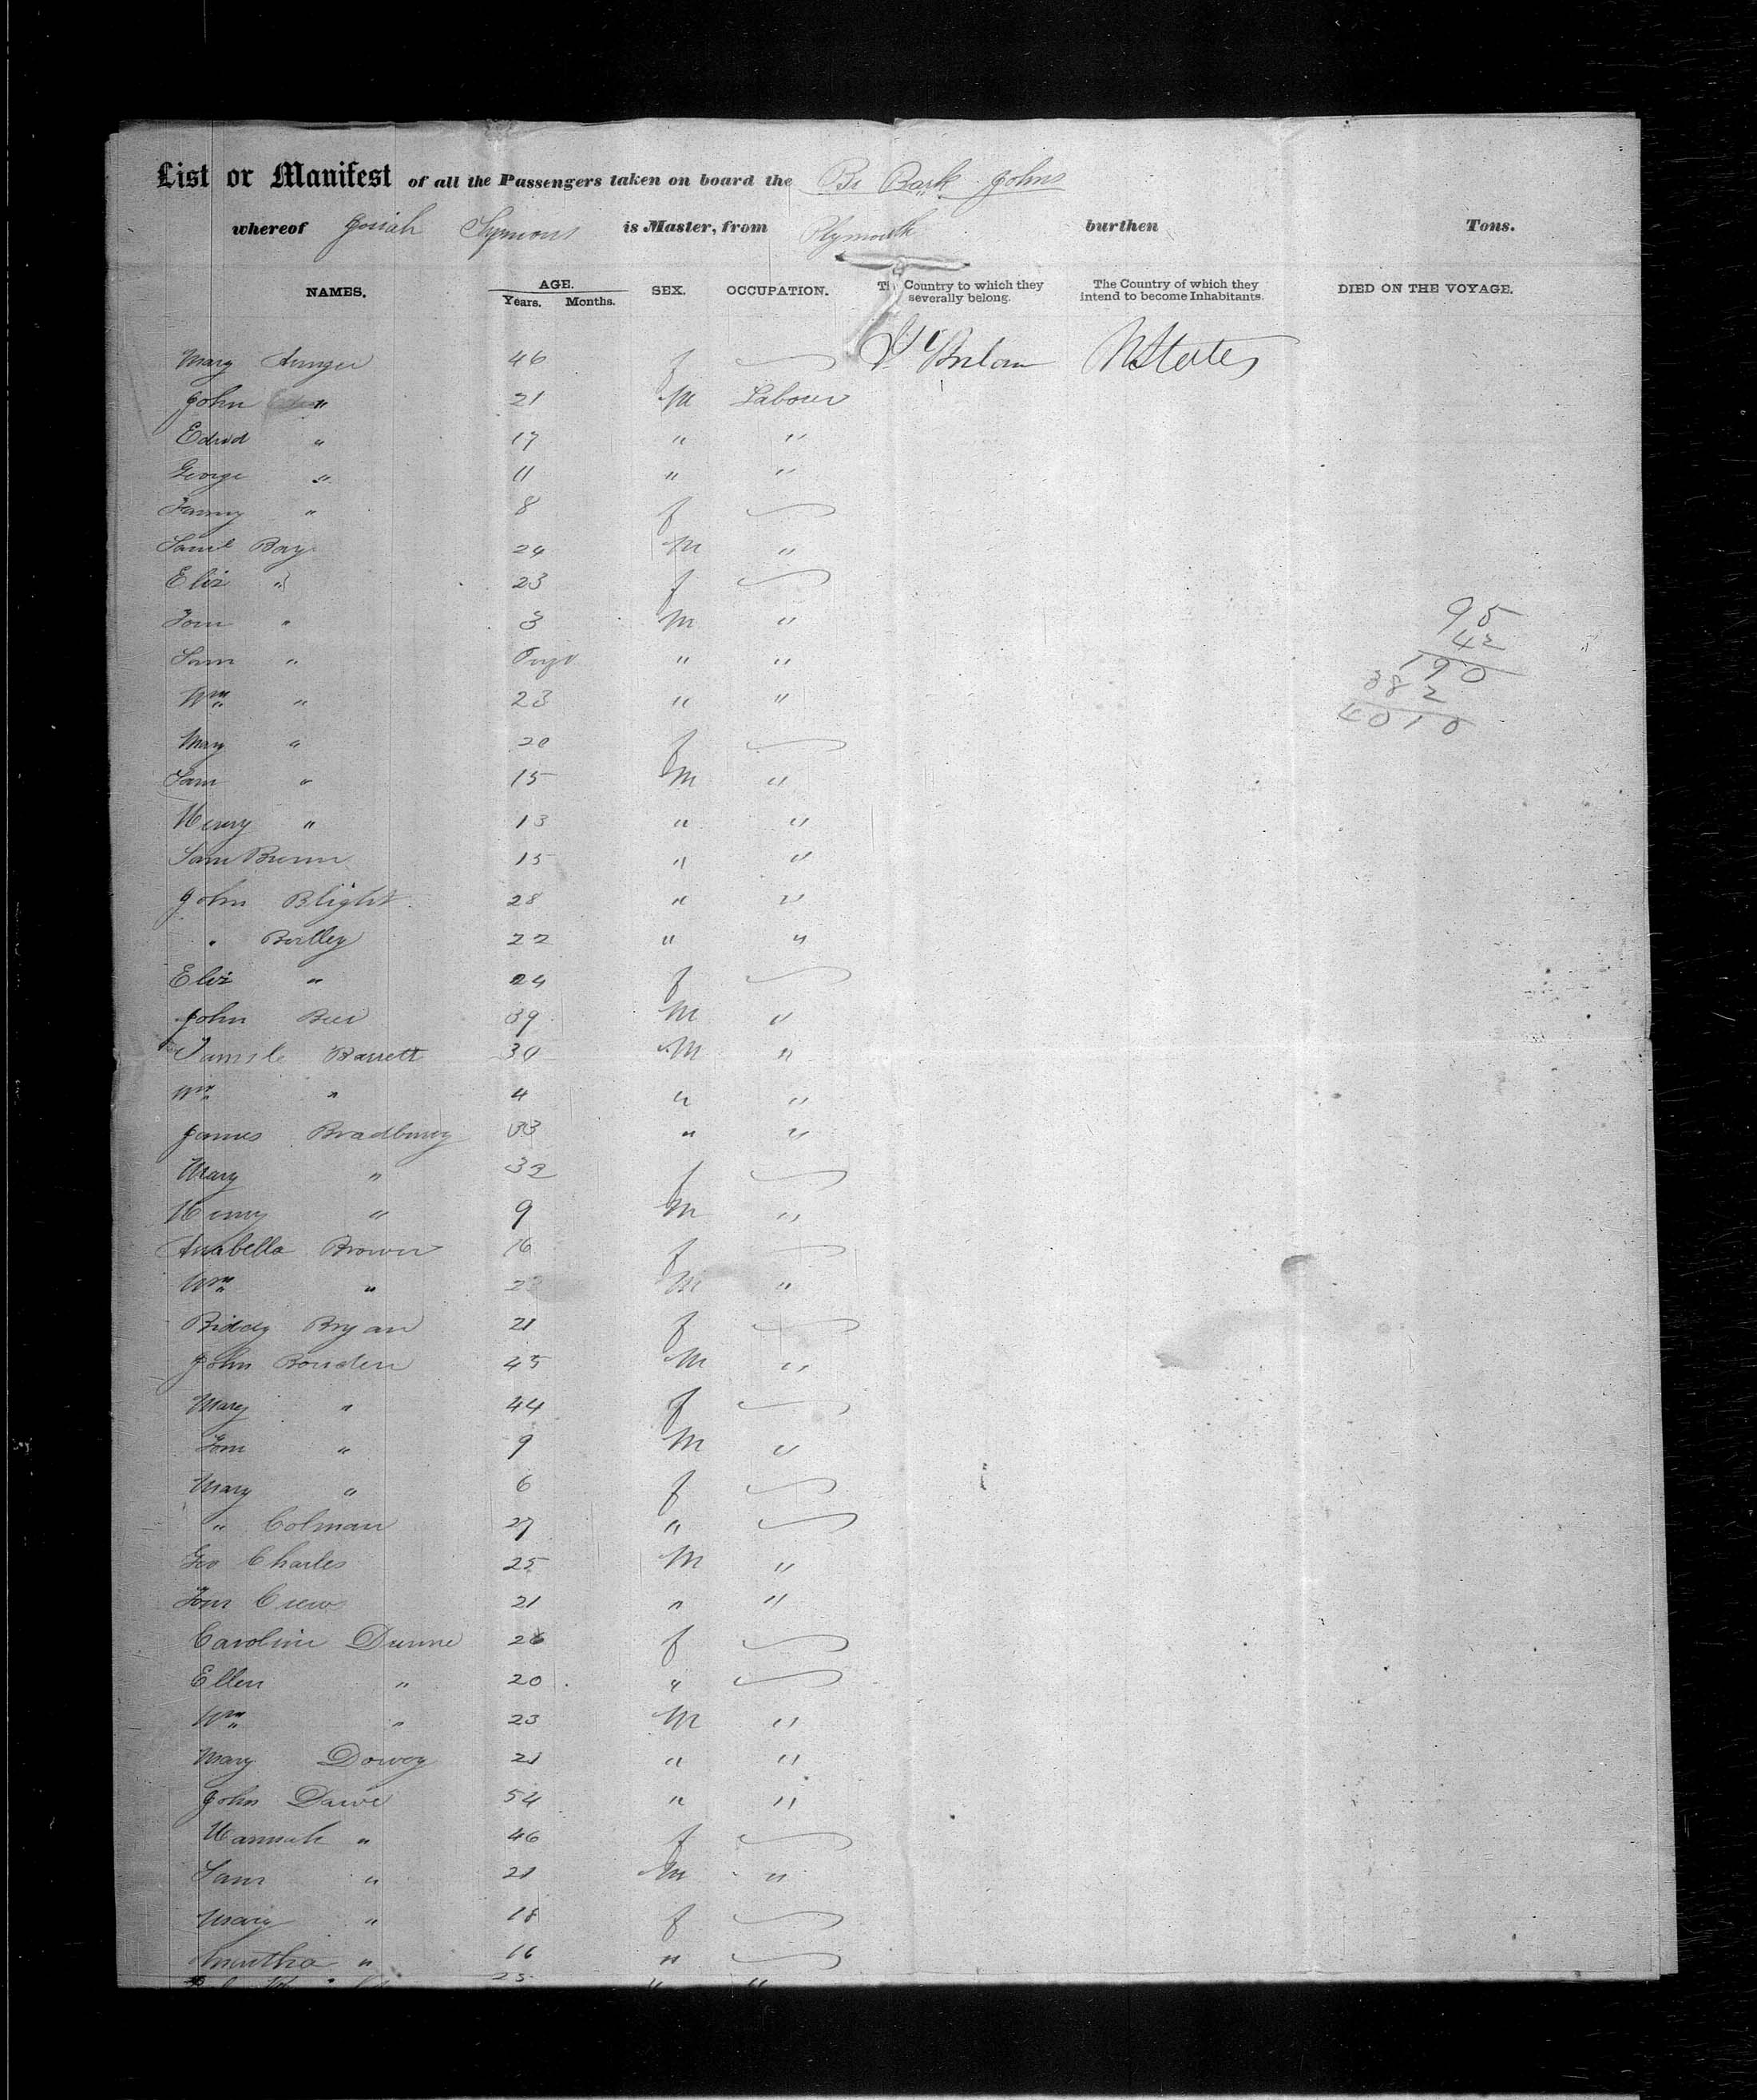 List or Manifest of all the Passengers taken on board the Br Bark Johns
whereof Josiah Symons is Master, from Plymouth burthen Tons.
NAMES. AGE. Years. Months. SEX. OCCUPATION. The Country to which they severally belong. The Country of which they intend to become Inhabitants. DIED ON THE VOYAGE.
Mary 46 f Gt Britain U States
John " 21 M Labour
Edwd " 17 " "
George " 11 " "
Fanny " 8 f
Saml Bay 24 M "
Eliz " 23 f
Tom " 3 M "
Sam " " "
Wm " 23 " "
Mary " 20 f
Sam " 15 M "
Henry " 13 " "
Sam 15 " "
John Blight 28 " "
" 22 " "
Eliz " 24 f
John Beer 39 M "
Barrett 30 M "
Wm " 4 " "
James Bradbury 33 " "
Mary " 32 f
Henry " 9 M "
Anabella Brown 16 f
Wm " M "
Biddy Bryan 21 f
John Bouden 45 M "
Mary " 44 f
Tom " 9 M "
Mary " 6 f
" Colman 27 "
Geo Charles 25 M "
Tom Crews 21 " "
Caroline Dunne 26 f
Ellen " 20 "
Wm " 23 M "
Mary Dovey 21 " "
John Dawe 54 " "
Hannah " 46 f
Sam " 21 M "
Mary " 18 f
" 16 "
25 " "
95
42
190
382
4010